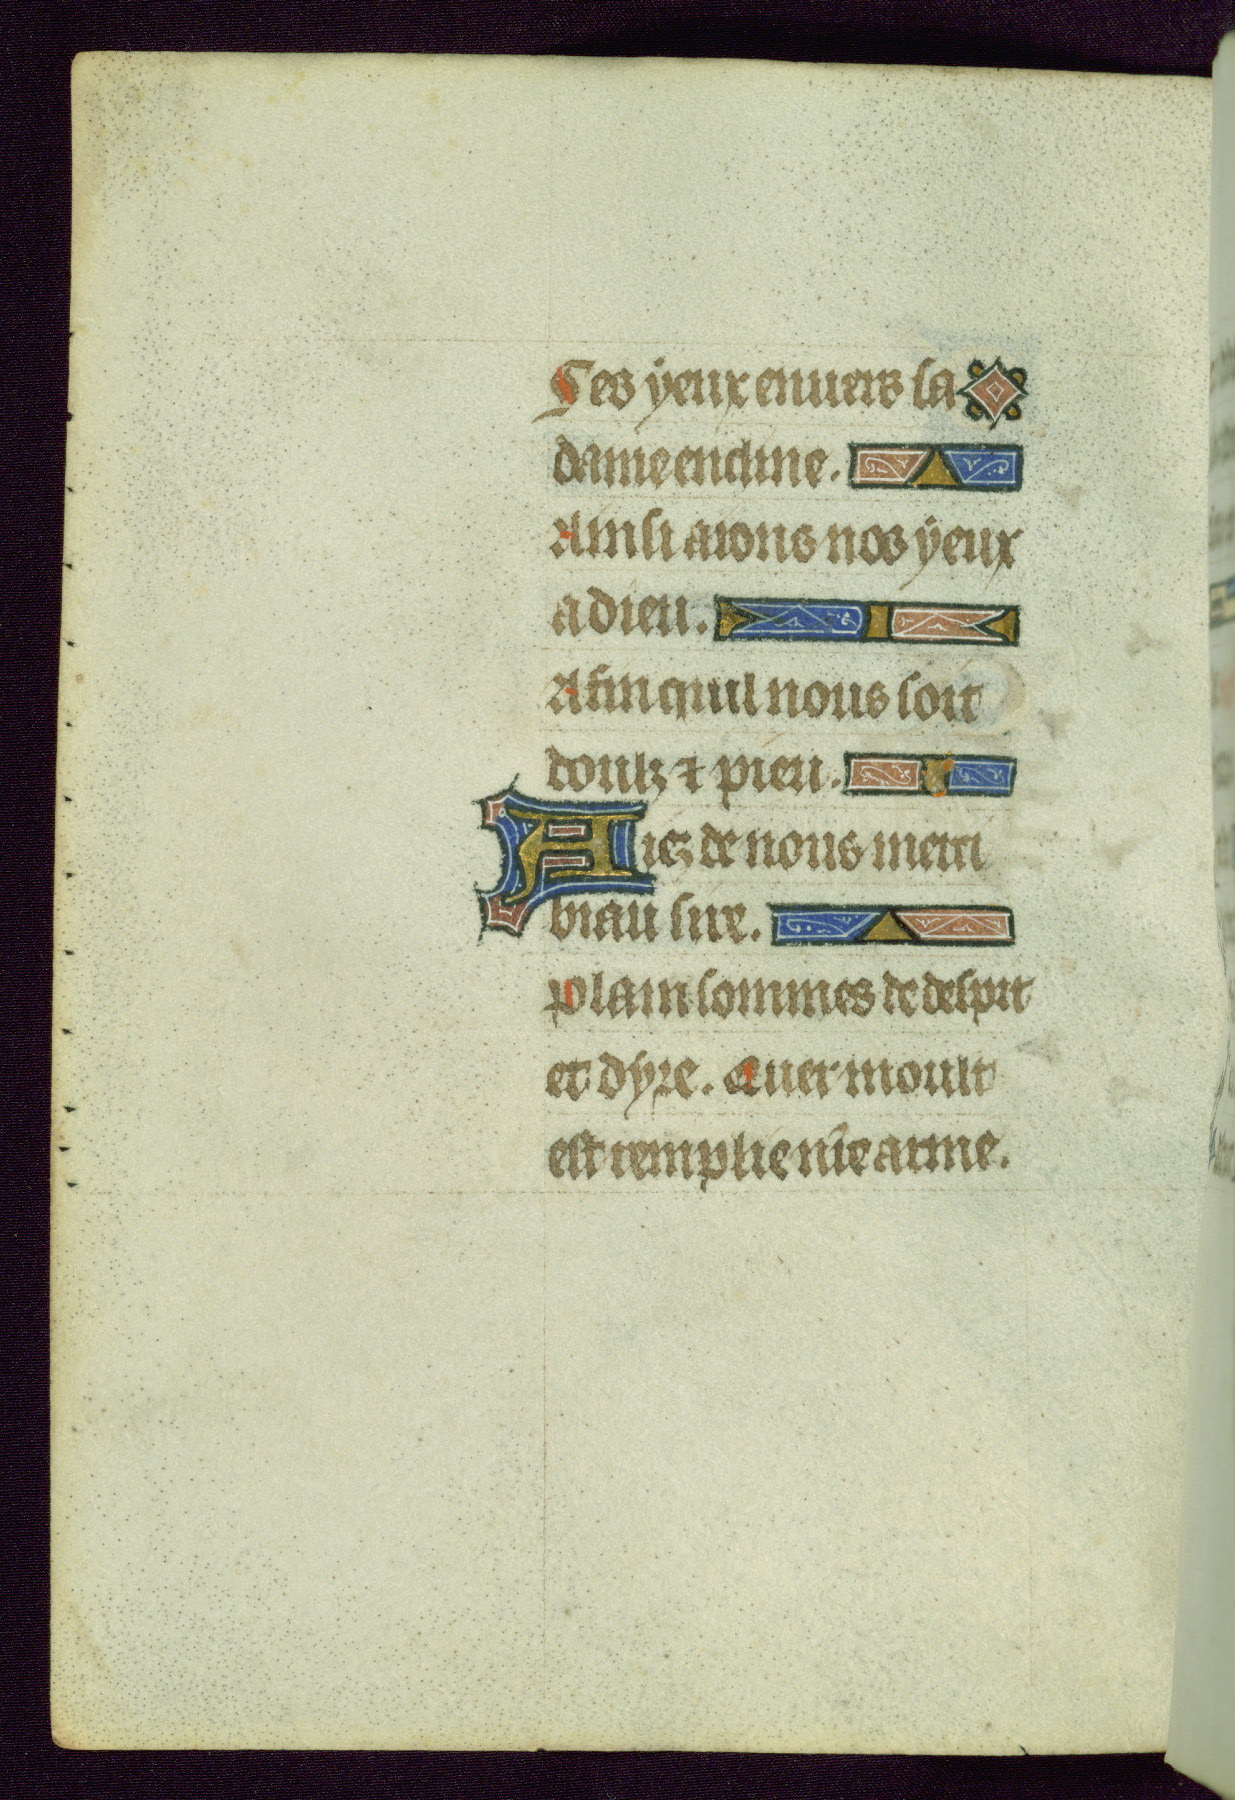 Ses yeux enuers la
dame encline.
Ainsi aions nos yeux
a dieu.
Afin quil nous soit
doulz ⁊ pieu.
Aiez de nous merci
biau sire.
Plain sommes de despit
et dyre. Auer moult
est remplie nr̄e arme.